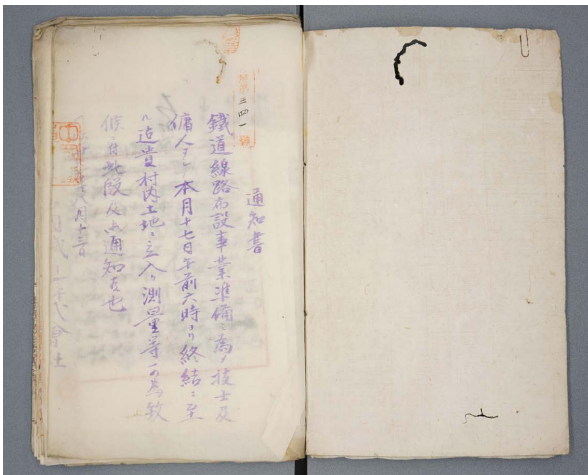 通知書
鐵道線路布設事業準備ノ為メ技士及
傭人ヲシテ本月十七日午前六時ヨリ終結ニ至
ル迄貴村内土地ニ立入リ測量等可為致
候ニ付此段及御通知候也
月十三日
會社
三四一